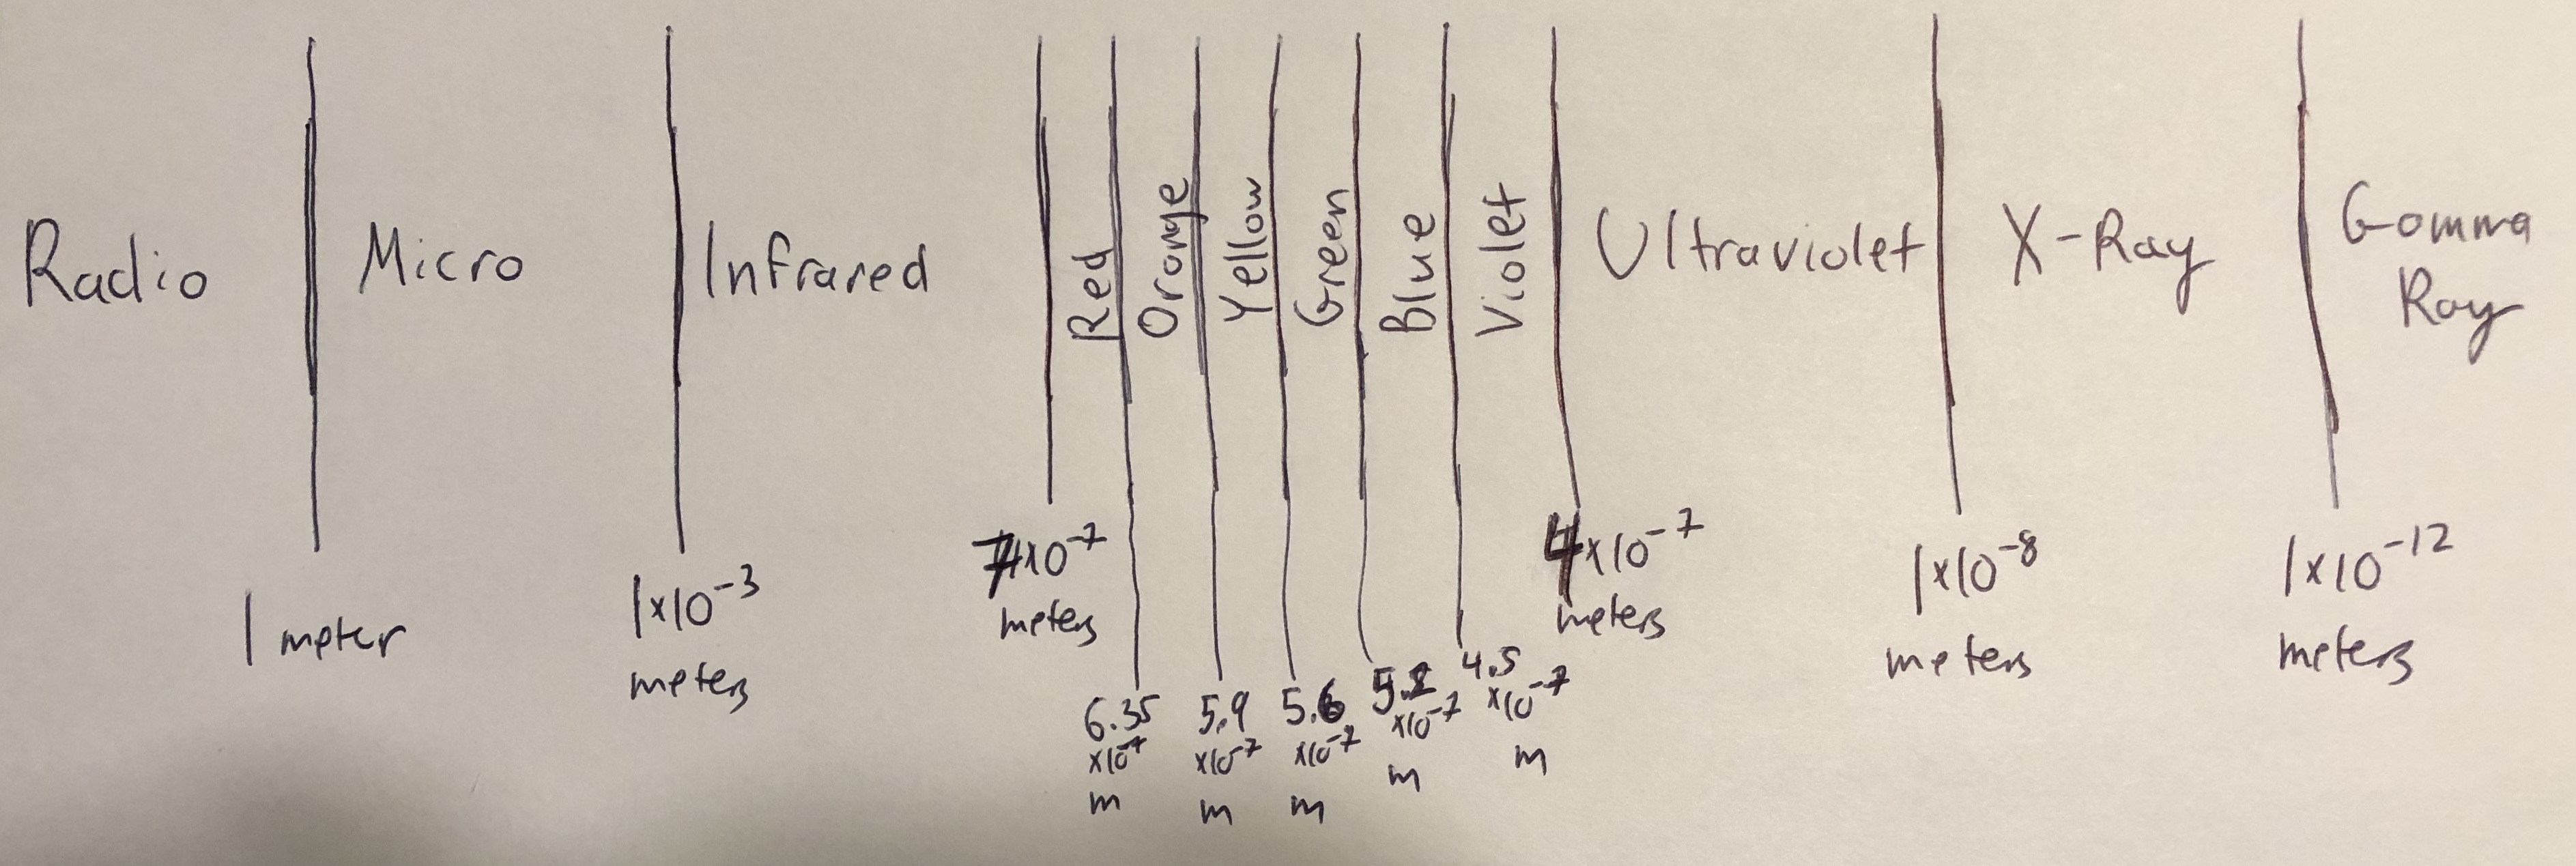 Radio
Micro
Infrared
Red
Orange
Yellow
Green
Blue
Violet
Ultraviolet
X-Ray
Gamma
Ray
1 meter
1x10⁻³
meters
7x10⁻⁷
meters
6.35
x10⁻⁷
m
5.9
x10⁻⁷
m
5.6
x10⁻⁷
m
5.2
x10⁻⁷
m
4.5
x10⁻⁷
m
4x10⁻⁷
meters
1x10⁻⁸
meters
1x10⁻¹²
meters